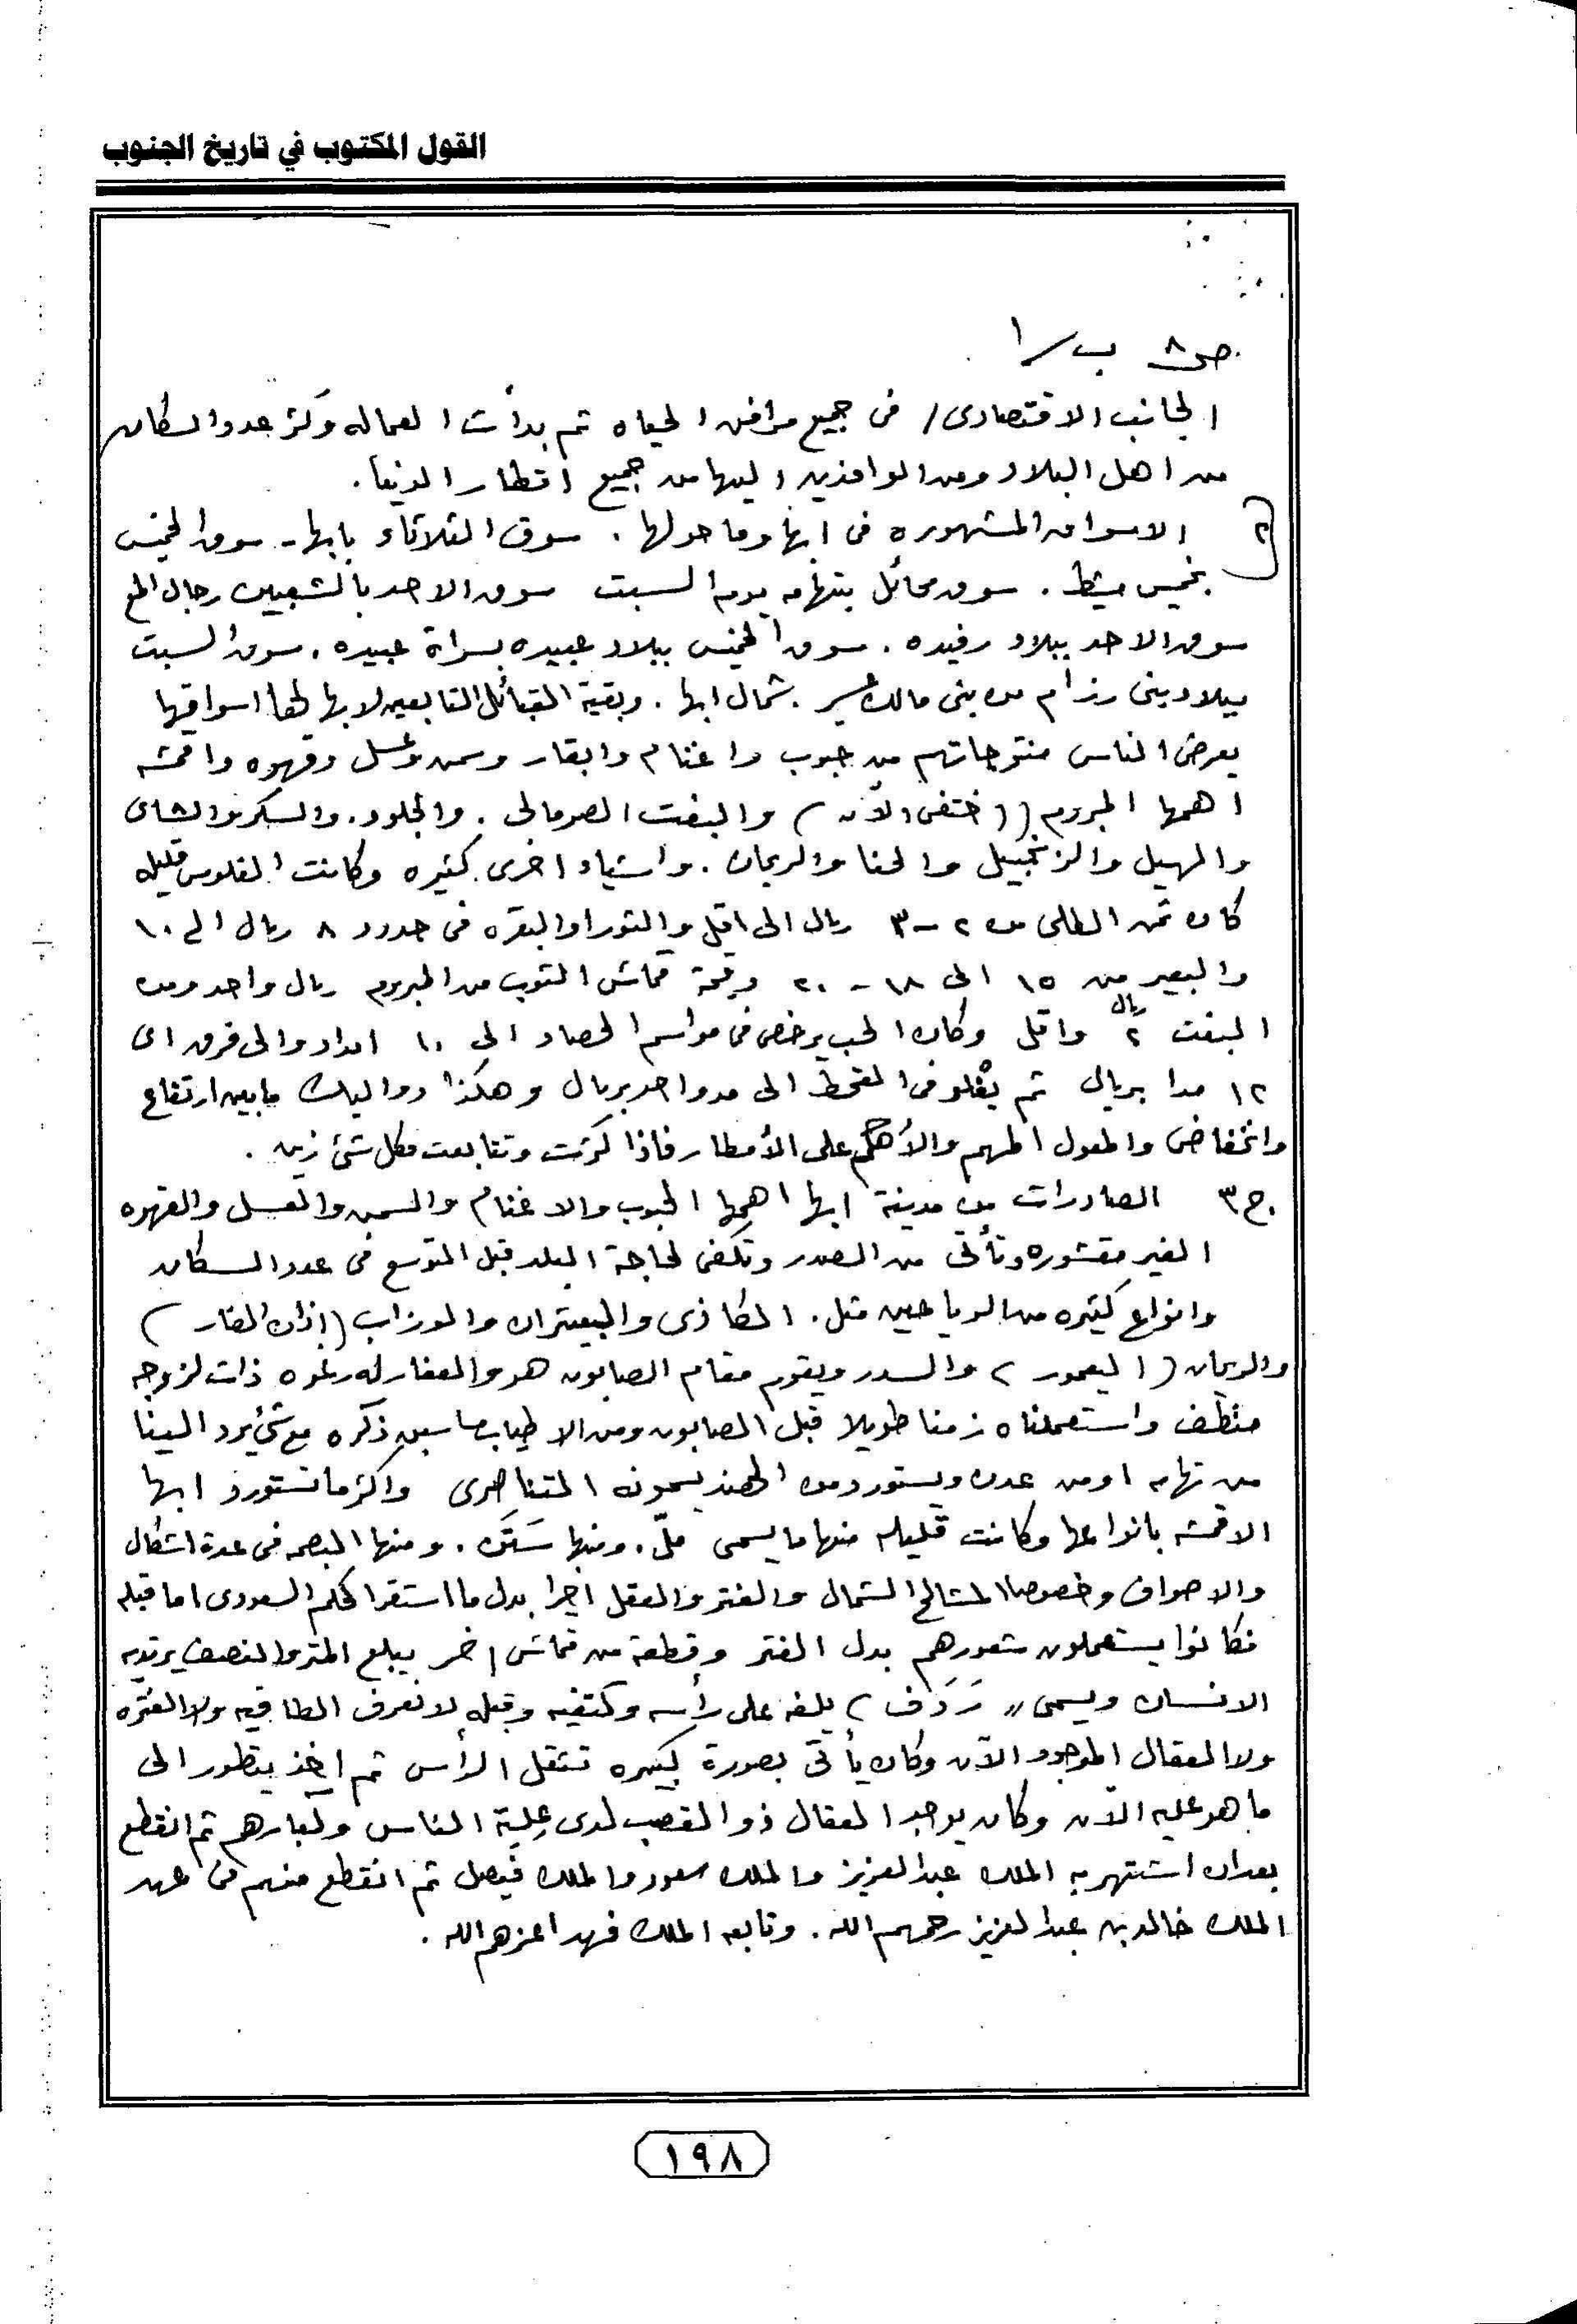 القول المكتوب في تاريخ الجنوب
ص ٨ ب/١
الجانب الاقتصادى/ فى جميع مرافق الحياه ثم بدأت العماله وكثر عدد السكان
من اهل البلاد ومن الوافدين اليها من جميع اقطار الدنيا.
ج٢ الاسواق المشهوره فى ابها وما حولها. سوق الثلاثاء بابها - سوق الخميس
بخميس مشيط. سوق محائل بتهامه يوم السبت سوق الاحد بالشعبين رجال المع
سوق الاحد ببلاد رفيده. سوق الخميس ببلاد عبيده بسراة عبيده. سوق السبت
ببلاد بنى رزام من بنى مالك عسير. شمال ابها. وبقية القبائل التابعين لابها لها اسواقها
يعرض الناس منتوجاتهم من حبوب واغنام وابقار وسمن وعسل وقهوه واقمشه
اهمها المبروم ((اختفى الآن) والبفت الصومالى. والجلود. والسكر والشاى
والهيل والزنجبيل والحنا والريحان. واشياء اخرى كثيره وكانت الفلوس قليله
كان ثمن الطلى من ٢-٣ ريال الى اقل والثور او البقره فى حدود ٨ ريال الى ١٠
والبعير من ١٥ الى ١٨-٢٠ وقيمة قماش الثوب من المبروم ريال واحد ومن
البفت ٢ ريال واقل وكان الحب يرخص فى مواسم الحصاد الى ١٠ امداد والى فرق اى
١٢ مدا بريال ثم يغلو فى القحط الى مد واحد بريال وهكذا دواليك مابين ارتفاع
وانخفاض والمعول المهم والأهم على الأمطار فاذا كثرت وتتابعت فكل شئ زين.
ج٣ الصادرات من مدينة ابها اهمها الحبوب والاغنام والسمن والعسل والقهوه
الغير مقشوره وتأتى من الصدر وتكفى لحاجة البلد قبل التوسع فى عدد السكان
وانواع كثيره من الرياحين مثل. الكاذى والبعيثران والوزاب (اذان الفار)
والريحان (اليعمور) والسدر ويقوم مقام الصابون هو والعفار له رغوه ذات لزوجه
منظف واستعملناه زمنا طويلا قبل الصابون ومن الاطياب ما سبق ذكره مع شئ يرد الينا
من تهامه او من عدن ويستورد من الهند يسمونه المتناصرى واكثر ما تستورد ابها
الاقمشه بانواعها وكانت قليله منها ما يسمى ملّ. ومنها ستكره. ومنها المبصم فى عدة اشكال
والاصواف وخصوصا المشالح الشمال والغتر والعقل اخيرا بدل ما استقر الحكم السعودى اما قبله
فكانوا يستعملون شعورهم بدل الغتر وقطعة من قماش اخر يبلع المتر والنصف يرتديه
الانسان ويسمى (( رَدَف) يلفه على رأسه وكتفيه وقبله لانعرف الطاقيه ولا الغتره
ولا العقال الموجود الآن وكان يأتى بصورة كبيره تثقل الرأس ثم اخذ يتطور الى
ما هو عليه الآن وكان يوجد العقال ذو القصب لدى عِلية الناس وكبارهم ثم انقطع
بعدان اشتهر به الملك عبدالعزيز والملك سعود والملك فيصل ثم انقطع منهم فى عهد
الملك خالد بن عبدالعزيز رحمهم الله. وتابعه الملك فهد اعزهم الله.
١٩٨